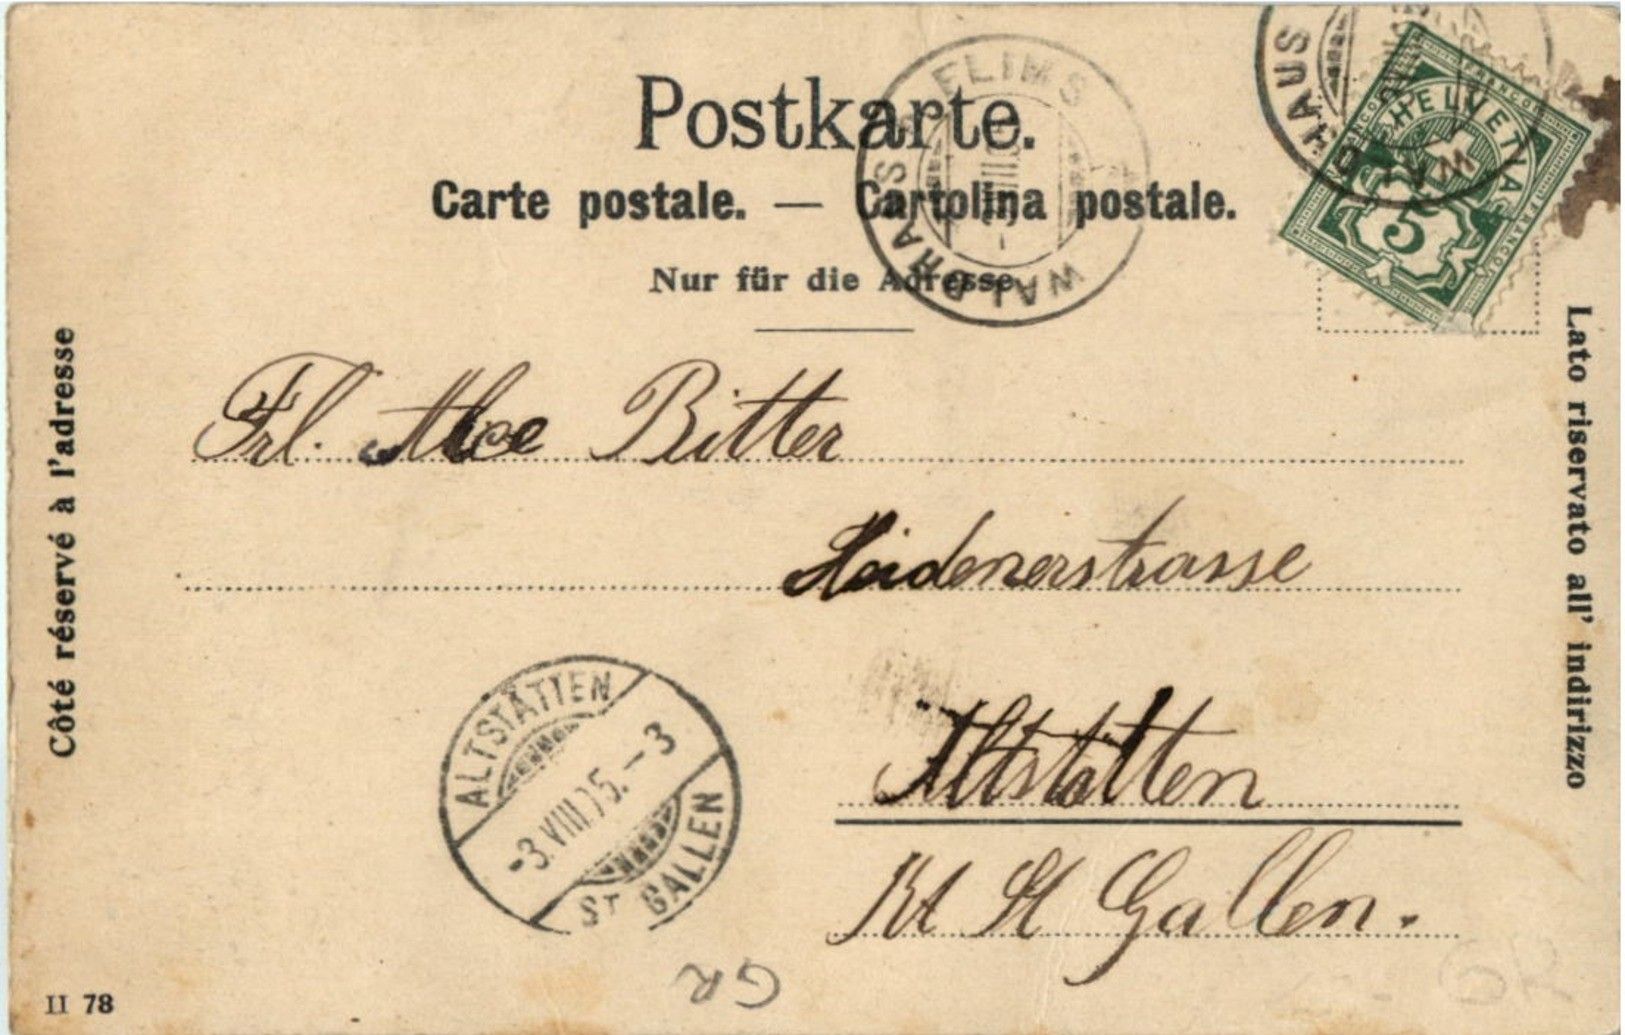 Postkarte.
Carte postale. — Cartolina postale.
Nur für die Adresse
FLIMS
WALDHAUS
HAUS
WAL
HELVETIA
FRANCO
5
Côté réservé à l'adresse
Lato riservato all' indirizzo
Frl. Alice Bitter
Heidenerstrasse
Altstätten
Kt St Gallen.
ALTSTÄTTEN
-3.VIII.05.-3
ST GALLEN
GR
II 78